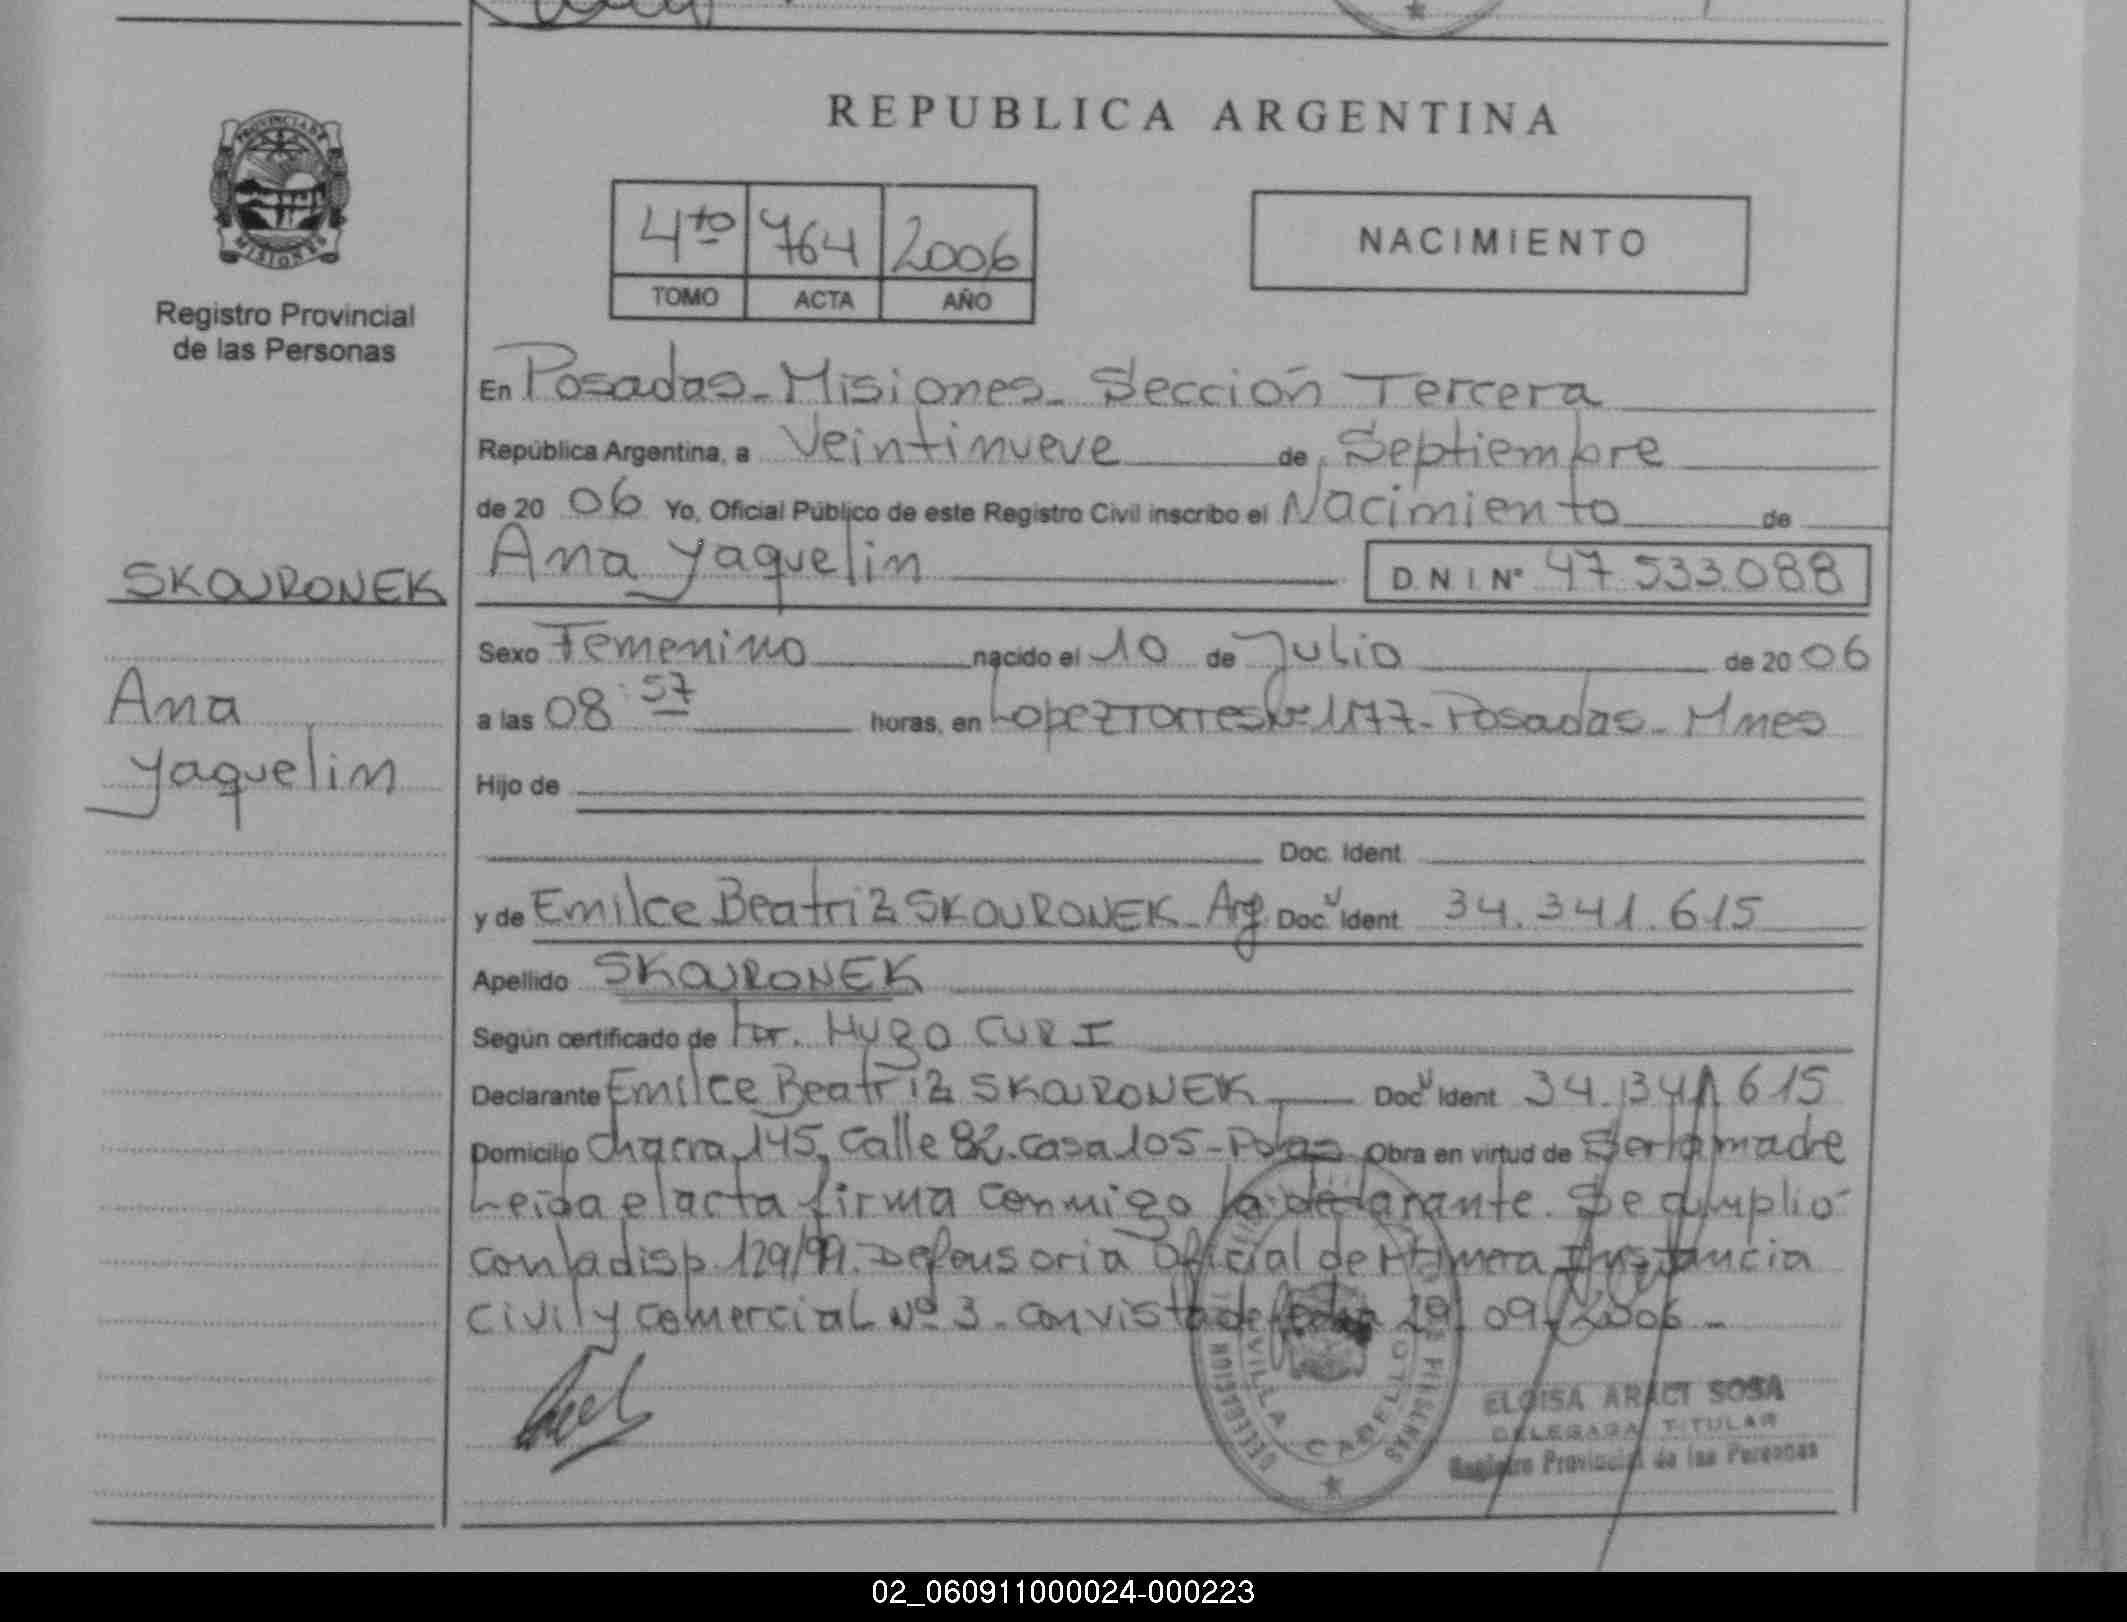 REPUBLICA ARGENTINA
PROVINCIA DE
MISIONES
Registro Provincial
de las Personas
4to 764 2006
TOMO ACTA AÑO
NACIMIENTO
En Posadas - Misiones - Sección Tercera
República Argentina, a Veintinueve de Septiembre
de 20 06 Yo, Oficial Público de este Registro Civil inscribo el Nacimiento de
Ana Yaquelin D.N.I.Nº 47.533.088
SKOURONEK
Ana
Yaquelin
Sexo Femenino nacido el 10 de Julio de 20 06
a las 08:57 horas, en Lopez Torres Nº 1177 - Posadas - Mnes
Hijo de
Doc. Ident.
y de Emilce Beatriz SKOURONEK - Arg. Doc. Ident. 34.341.615
Apellido SKOURONEK
Según certificado de Dr. Hugo CURI
Declarante Emilce Beatriz SKOURONEK Doc. Ident. 34.341.615
Domicilio Chacra 145, Calle 82. Casa 105 - Pdas Obra en virtud de Ser la madre
Leida el acta firma conmigo la declarante. Se cumplió
con la disp. 129/99. Defensoria Oficial de Primera Instancia
Civil y Comercial Nº 3 - con vista de fecha 29/09/2006 -
DELEGACION VILLA CABELLO
ELOISA ARACI SOSA
DELEGADA TITULAR
Registro Provincial de las Personas
02_060911000024-000223